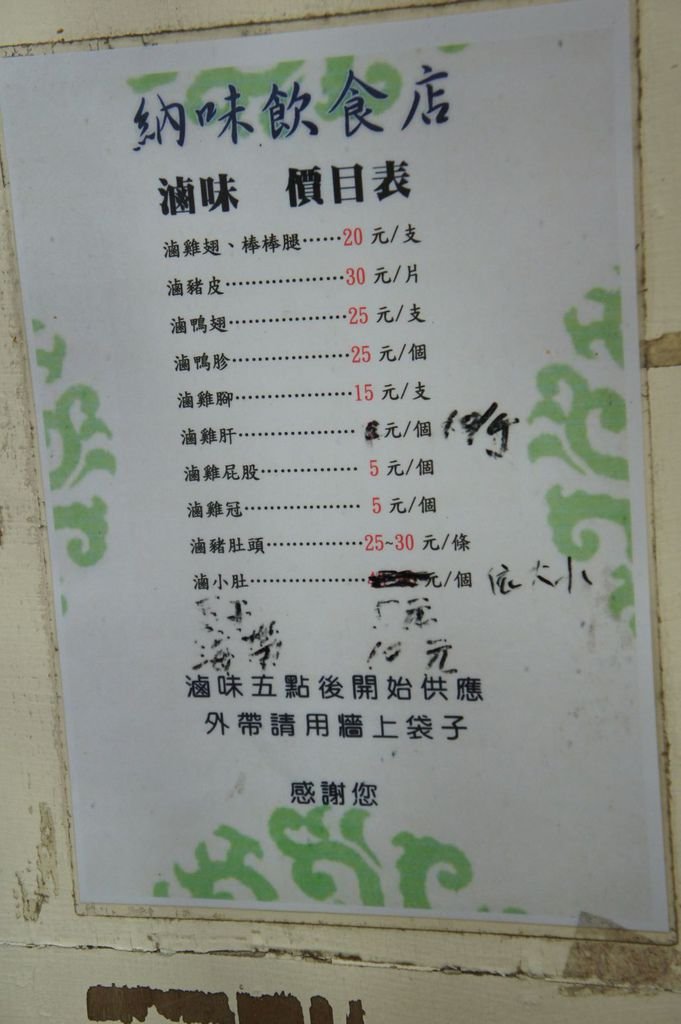 納味飲食店
滷味 價目表
滷雞翅、棒棒腿……20 元/支
滷豬皮………………30 元/片
滷鴨翅………………25 元/支
滷鴨胗………………25 元/個
滷雞腳………………15 元/支
滷雞肝………………元/個
滷雞屁股……………5 元/個
滷雞冠………………5 元/個
滷豬肚頭……………25~30 元/條
滷小肚………………元/個 依大小
元
海帶 10元
滷味五點後開始供應
外帶請用牆上袋子
感謝您